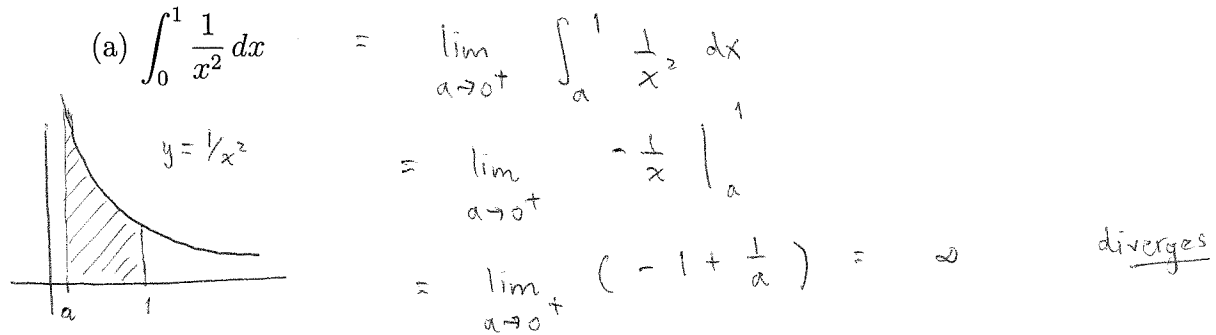 (a) ∫₀¹ 1/x² dx = lim a→0⁺ ∫ₐ¹ 1/x² dx
y = 1/x²
= lim a→0⁺ -1/x |ₐ¹
= lim a→0⁺ (-1 + 1/a) = ∞ diverges
a 1